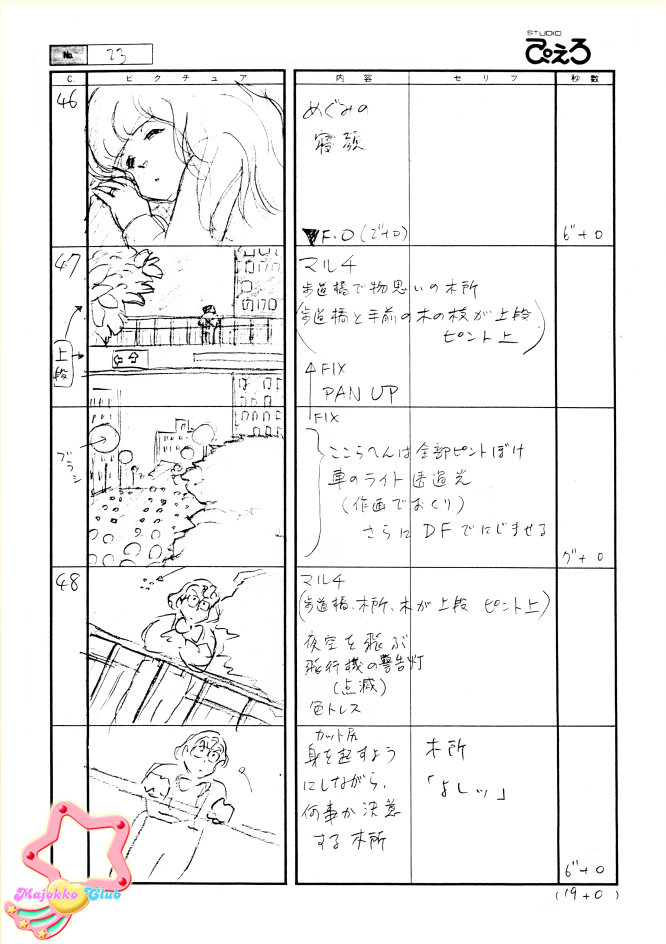 No. 23
STUDIO
ぴえろ
C. ピクチュア 内容 セリフ 秒数
46
めぐみの
寝顔
▼F.O (2"+0)
6"+0
47
上段
マルチ
歩道橋で物思いの木所
(歩道橋と手前の木の枝が上段
ピント上)
↑FIX
PAN UP
FIX
ブラシ
ここらへんは全部ピントぼけ
車のライト透過光
(作画でおくり)
さらに DFでにじませる
7"+0
48
マルチ
(歩道橋、木所、木が上段 ピント上)
夜空を飛ぶ
飛行機の警告灯
(点滅)
色トレス
カット尻
身を起すよう
にしながら、
何事か決意
する木所
木所
「よしッ」
6"+0
(19+0)
Majokko Club